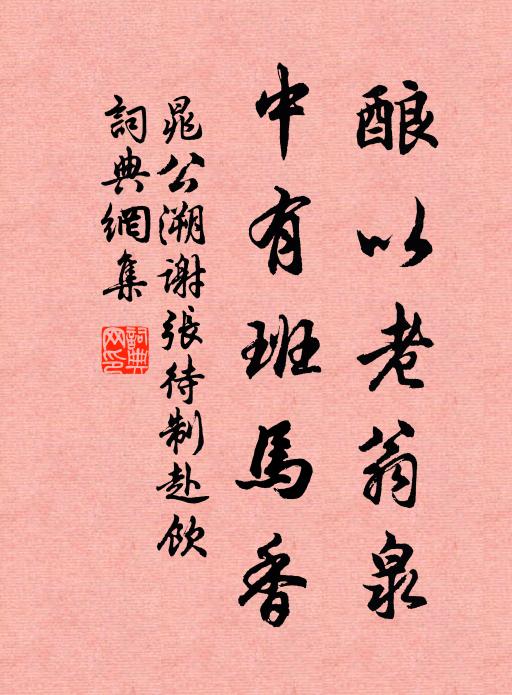 酿以老翁泉
中有班馬香
晁公溯谢張待制赴飲
詞典網集
詞典網印